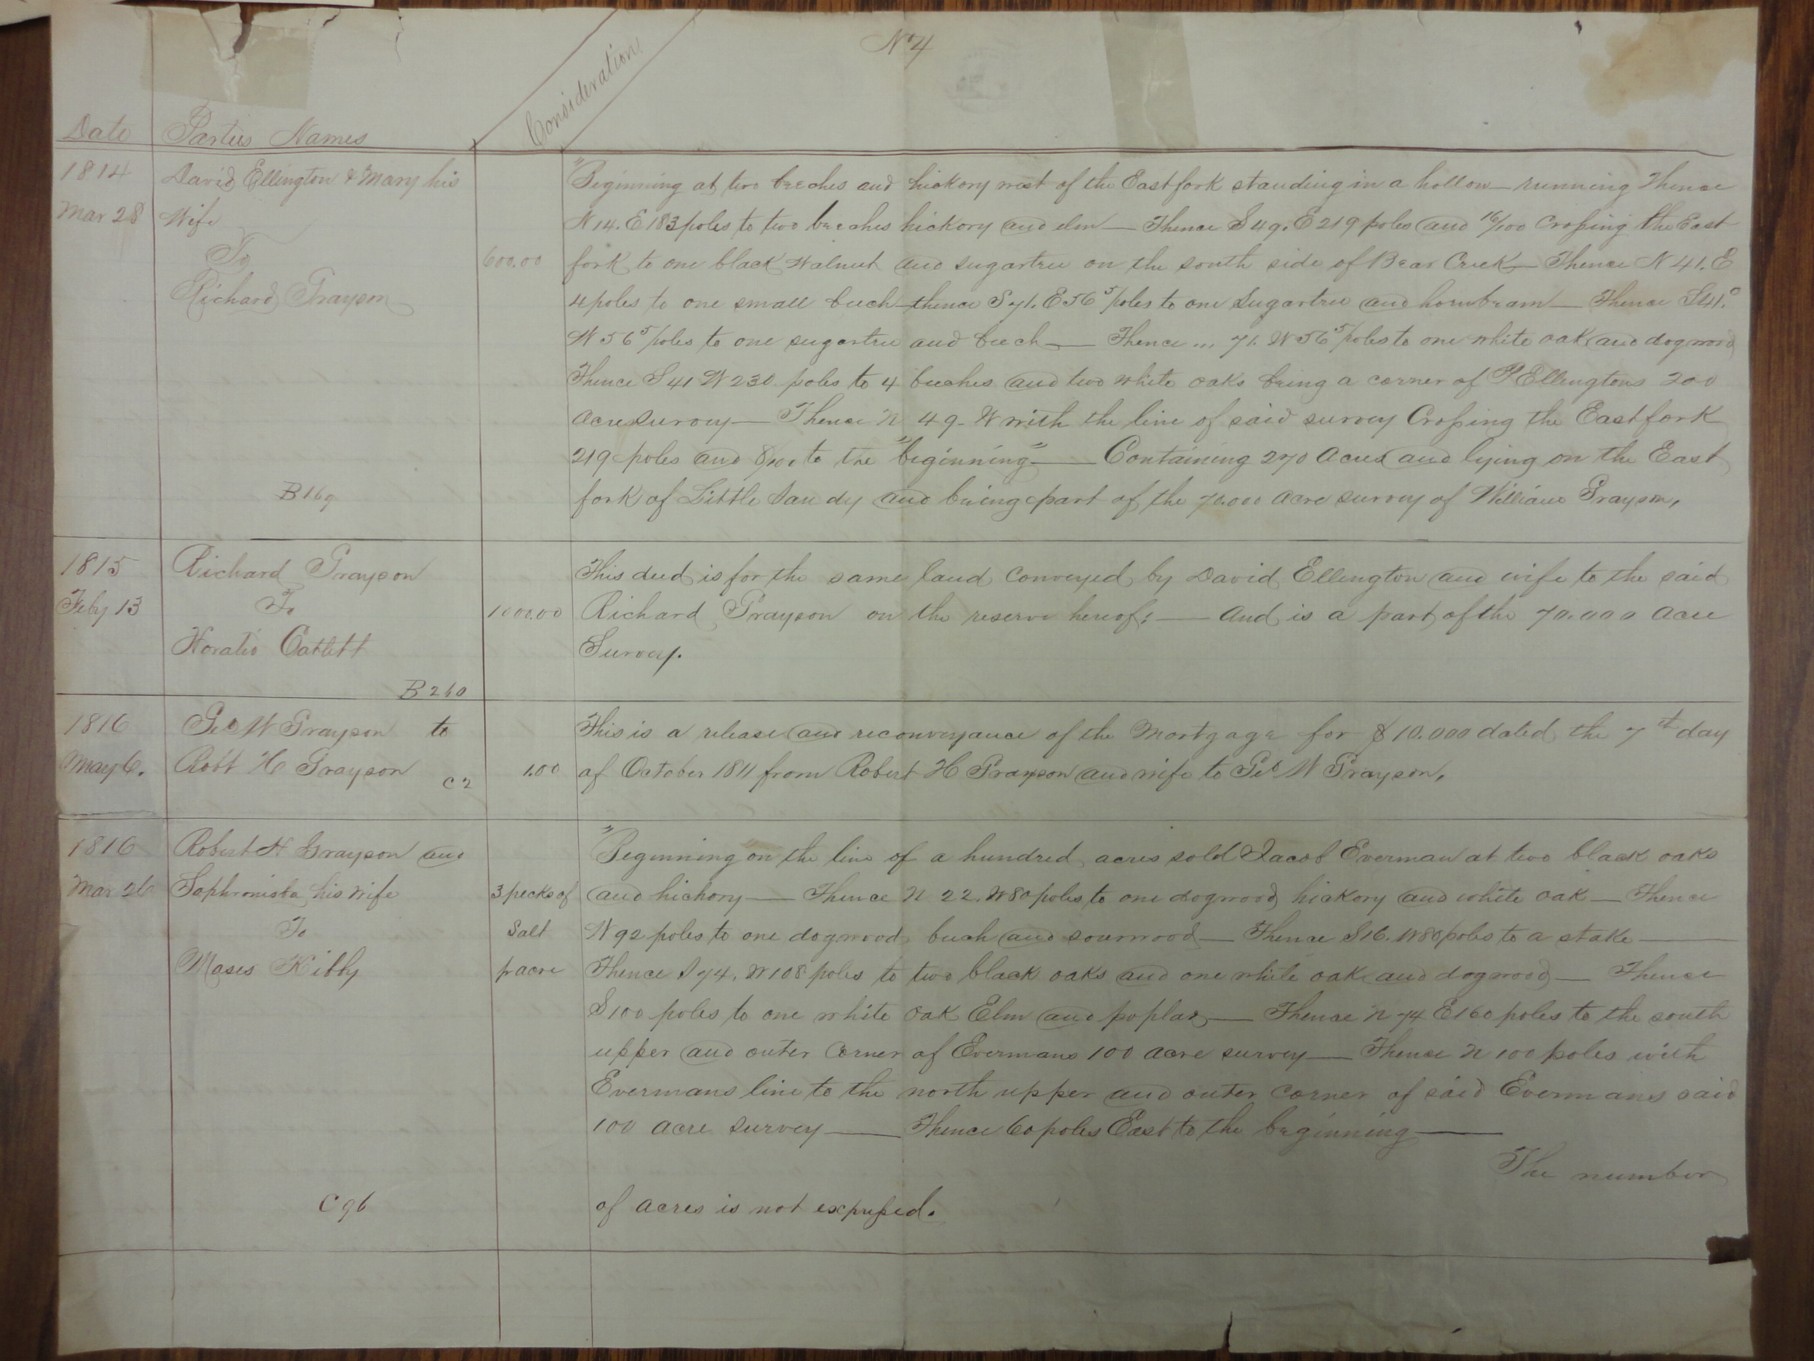 No 4
Date Parties Names Consideration
1814 David Ellington & Mary his "Beginning at two beeches and hickory west of the East fork standing in a hollow running Thence
Mar 28 Wife N 14. E 183 poles to two beeches hickory and elm — Thence S 49. E 219 poles and 16/100 Crossing the East
To 600.00 fork to one black Walnut and sugartree on the south side of Bear Creek — Thence N 41. E
Richard Grayson 4 poles to one small beech thence S 71. E 56 5 poles to one Sugartree and hornbeam — Thence S 41.°
W 56 5 poles to one sugartree and beech — Thence ... 71. W 56 5 poles to one white oak and dogwood
Thence S 41 W 230 poles to 4 beeches and two white oaks being a corner of Ellingtons 200
acre survey — Thence N 49. W with the line of said survey Crossing the East fork
219 poles and to the "beginning" — Containing 270 Acres and lying on the East
B 169 fork of Little Sandy and being part of the 70.000 acre survey of William Grayson.
1815 Richard Grayson This deed is for the same land conveyed by David Ellington and wife to the said
Feby 13 To 1000.00 Richard Grayson on the reserve hereof: — And is a part of the 70.000 acre
Horatio Catlett Survey.
B 260
1816 Geo W Grayson to This is a release and reconveyance of the Mortgage for $10.000 dated the 7th day
May 6. Robt H Grayson C 2 1.00 of October 1811 from Robert H Grayson and wife to Geo W Grayson.
1816 Robert H Grayson and "Beginning on the line of a hundred acres sold Jacob Everman at two black oaks
Mar 26 Sophroniska his wife 3 pecks of and hickory — Thence N 22. W 80 poles to one dogwood hickory and white oak — Thence
To Salt N 92 poles to one dogwood beech and sourwood — Thence S 16. W 80 poles to a stake —
Moses Kibby pr acre Thence S 74. W 108 poles to two black oaks and one white oak and dogwood — Thence
S 100 poles to one white oak Elm and poplar — Thence N 74 E 160 poles to the south
upper and outer corner of Evermans 100 acre survey — Thence N 100 poles with
Evermans line to the north upper and outer corner of said Evermans said
100 acre survey — Thence 60 poles East to the beginning —
The number
C 96 of acres is not expressed.